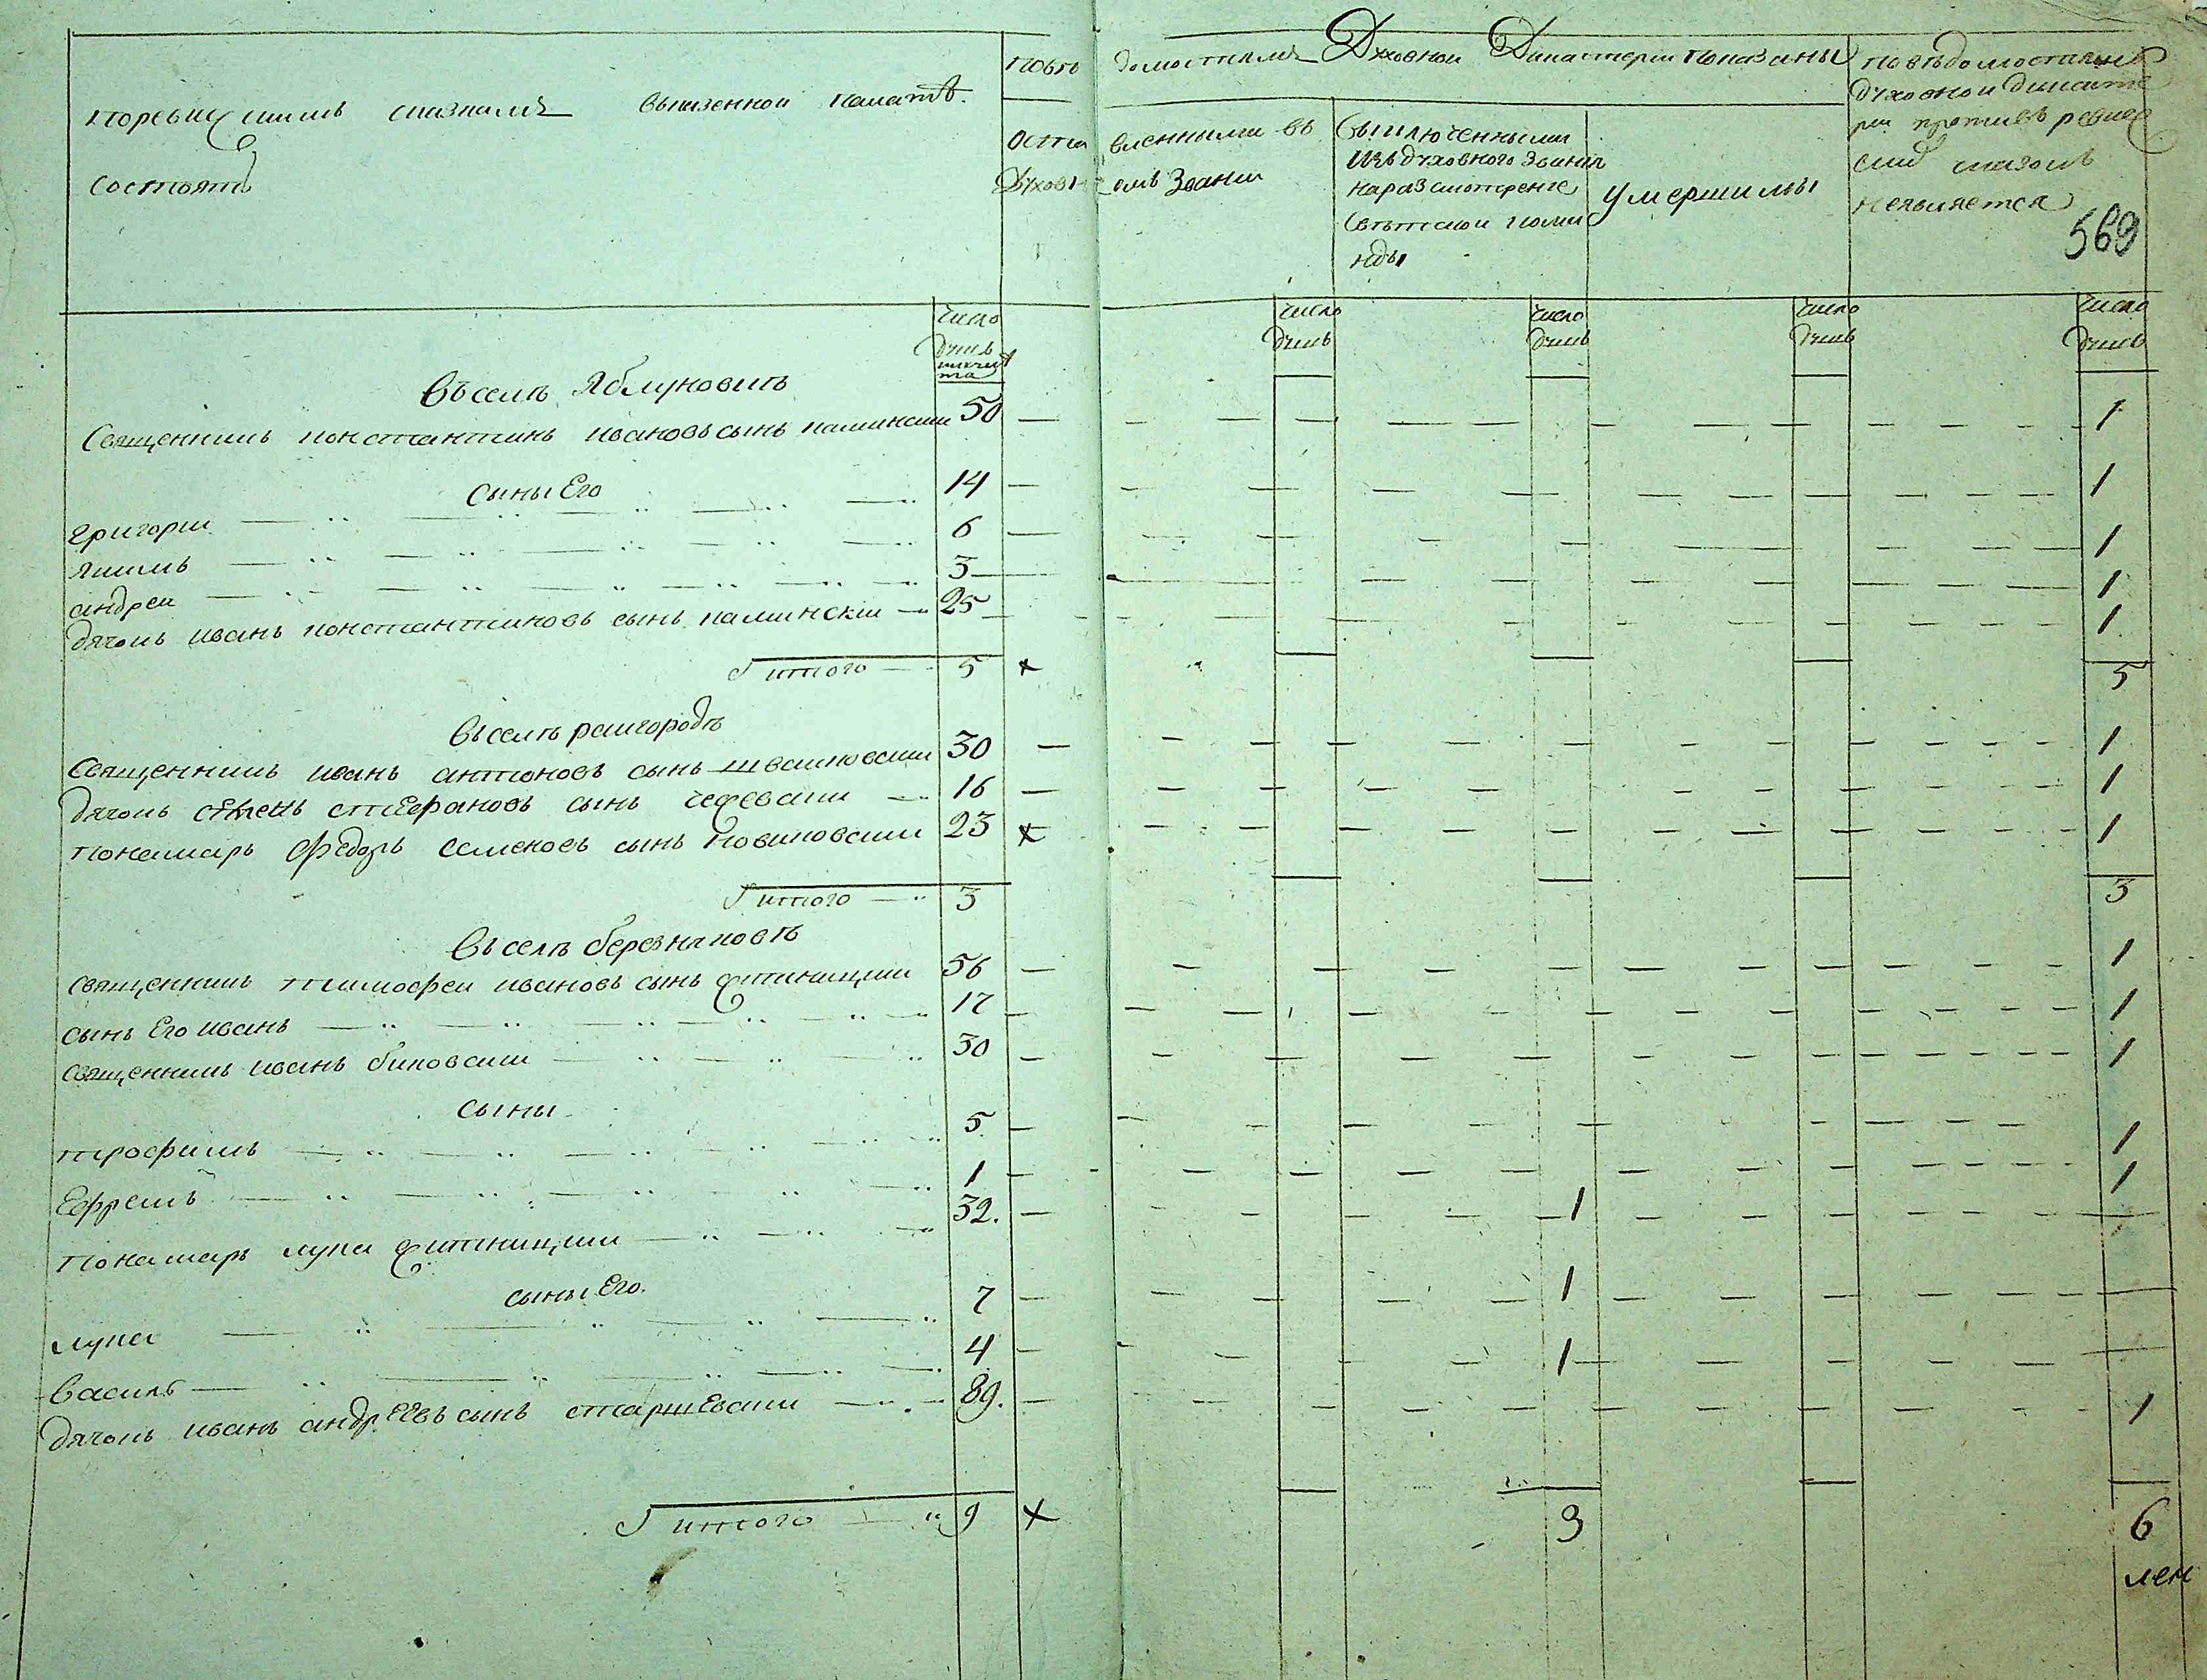 поревиским сказкамъ вказенной палатѣ
состоятъ
Повѣ домостямъ Духовной Дикастерии показаны
оста вленными въ
Духовн омъ Звании
Выключенными
изъ духовного звания
на разсмотрение
свѣтской коман
ды
умершимы
По вѣдомостямъ
духовной дикасте
рии противъ ревис
ских сказокъ
неявляется
569
число душъ
число душъ
число душъ
число душъ
число душъ
Въ селѣ Яблуновкѣ
Священникъ константинъ ивановъ сынъ каминский 50 1
сыны Его
григорий 14 1
якимъ 6 1
андрей 3 1
дячокъ иванъ константиновъ сынъ каминский 25 1
итого 5 × 5
Въ селѣ райгородѣ
Священникъ иванъ антоновъ сынъ швайковский 30 1
дячокъ стефановъ сынъ 16 1
понамарь федоръ семеновъ сынъ новиковский 23 × 1
итого 3 3
Въ селѣ березняковѣ
священникъ тимофей ивановъ сынъ 56 1
сынъ Его иванъ 17 1
священникъ иванъ биковский 30 1
сыны
трофимъ 5 1
Ефремъ 1 1
понамарь лука 32. 1
сыны Его
лука 7 1
василь 4 1
дячокъ иванъ андреевъ сынъ старшевский 89. 1
итого 9 × 3 6